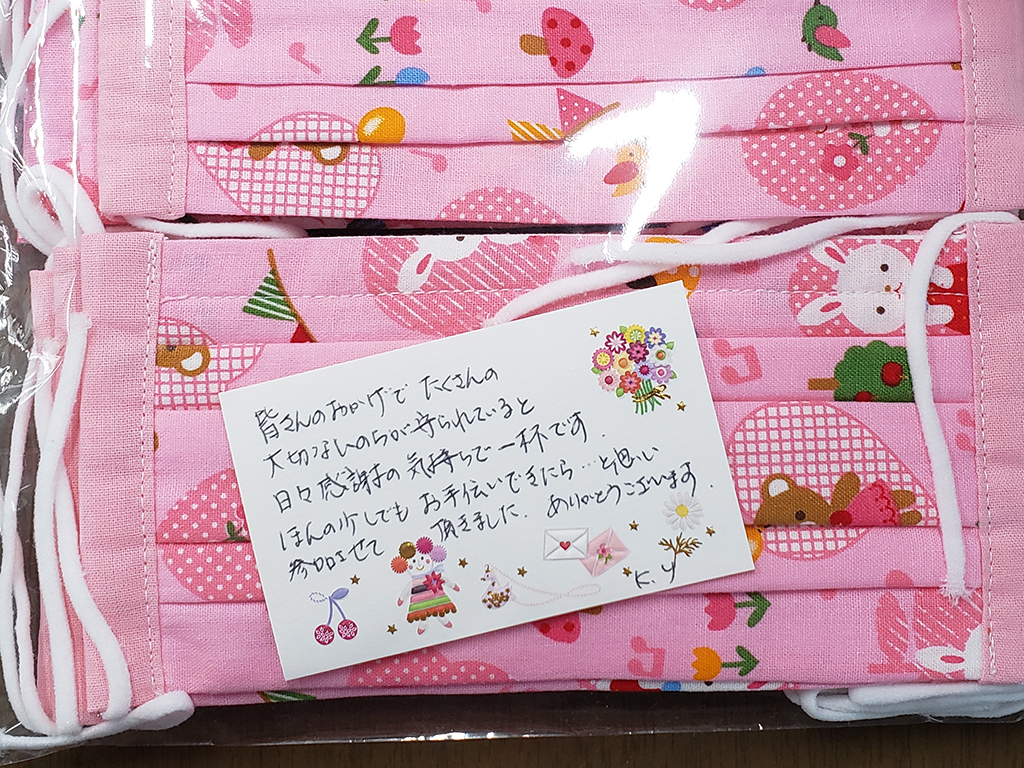 皆さんのおかげで たくさんの
大切ないのちが守られていると
日々感謝の気持ちで一杯です.
ほんの少しでも お手伝いできたら…と思い
参加させて 頂きました. ありがとうございます.
K.Y